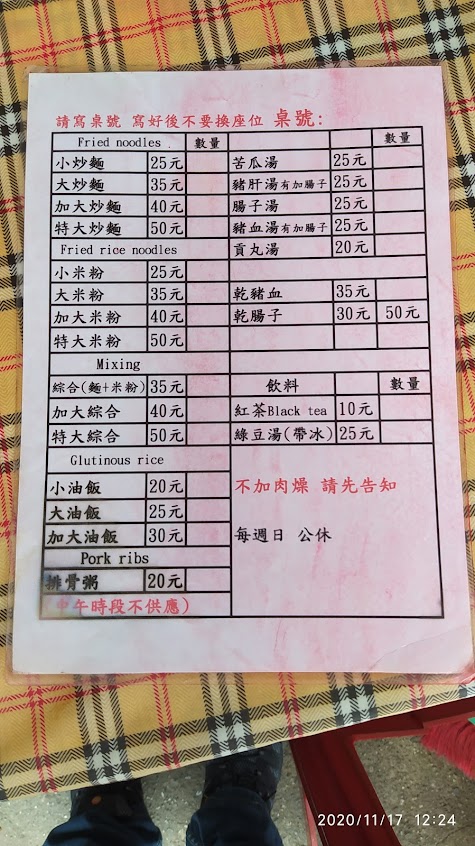 請寫桌號 寫好後不要換座位 桌號:
Fried noodles. 數量
小炒麵 25元
大炒麵 35元
加大炒麵 40元
特大炒麵 50元
Fried rice noodles
小米粉 25元
大米粉 35元
加大米粉 40元
特大米粉 50元
Mixing
綜合(麵+米粉) 35元
加大綜合 40元
特大綜合 50元
Glutinous rice
小油飯 20元
大油飯 25元
加大油飯 30元
Pork ribs
排骨粥 20元
中午時段不供應)
數量
苦瓜湯 25元
豬肝湯有加腸子 25元
腸子湯 25元
豬血湯有加腸子 25元
貢丸湯 20元
乾豬血 35元
乾腸子 30元 50元
飲料 數量
紅茶Black tea 10元
綠豆湯(帶冰) 25元
不加肉燥 請先告知
每週日 公休
2020/11/17 12:24